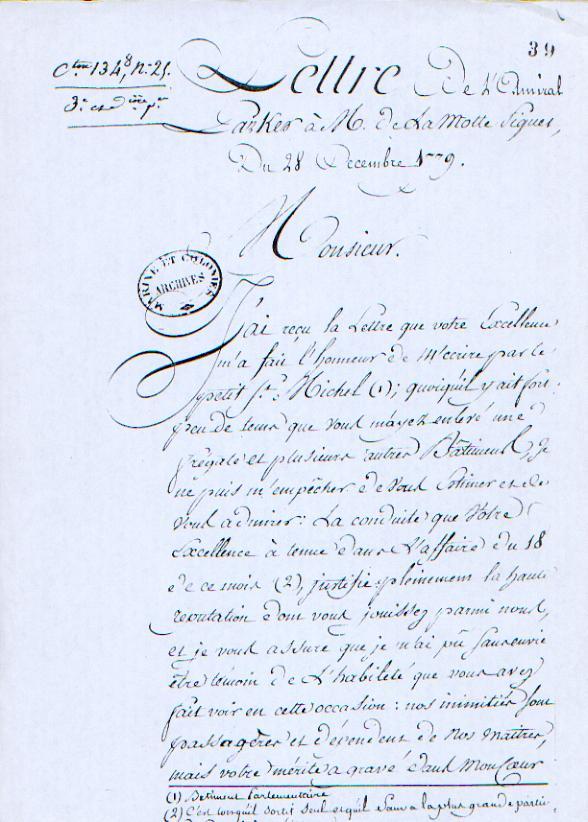 39
C.ton 134, n.° 25.
Lettre De L'Amiral
3.e et d
Parker à M. de La Motte Piquet,
Du 28 Decembre 1779.
Monsieur.
MARINE ET COLONIES
ARCHIVES
J'ai reçu la Lettre que votre Excellence
m'a fait l'honneur de M'écrire par le
petit S.t Michel (1); quoiqu'il y ait fort
peu de tems que vous m'ayez enlevé une
frégate et plusieurs autres Bâtimens, je
ne puis m'empêcher de vous Estimer et de
vous admirer: La conduite que Votre
Excellence à tenue dans L'affaire du 18
de ce mois (2), justifie plènement la haute
reputation dont vous jouissez parmi nous,
et je vous assure que je n'ai pû sans envie
être témoin de L'habileté que vous avez
fait voir en cette occasion: nos inimitiés sont
passagères et dépendent de Nos Maîtres,
mais votre mérite a gravé dans Mon Cœur
(1) Batiment Parlementaire
(2) C'est lorsqu'il sortit seul et qu'il sauva la plus grande partie